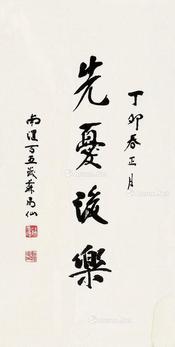 丁卯春正月
先憂後樂
南溟百五歲蘇局仙